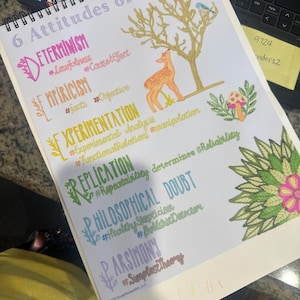 6 Attitudes of
DETERMINISM
#Lawfulness #Cause&Effect
EMPIRICISM
#facts #Objective
EXPERIMENTATION
#Experimental Analysis #manipulation
#FunctionalRelations
REPLICATION
#Repeatability determines #Reliability
PHILOSOPHICAL DOUBT
#HealthySkepticism
#BullshitDetector
PARSIMONY
#SimplestTheory